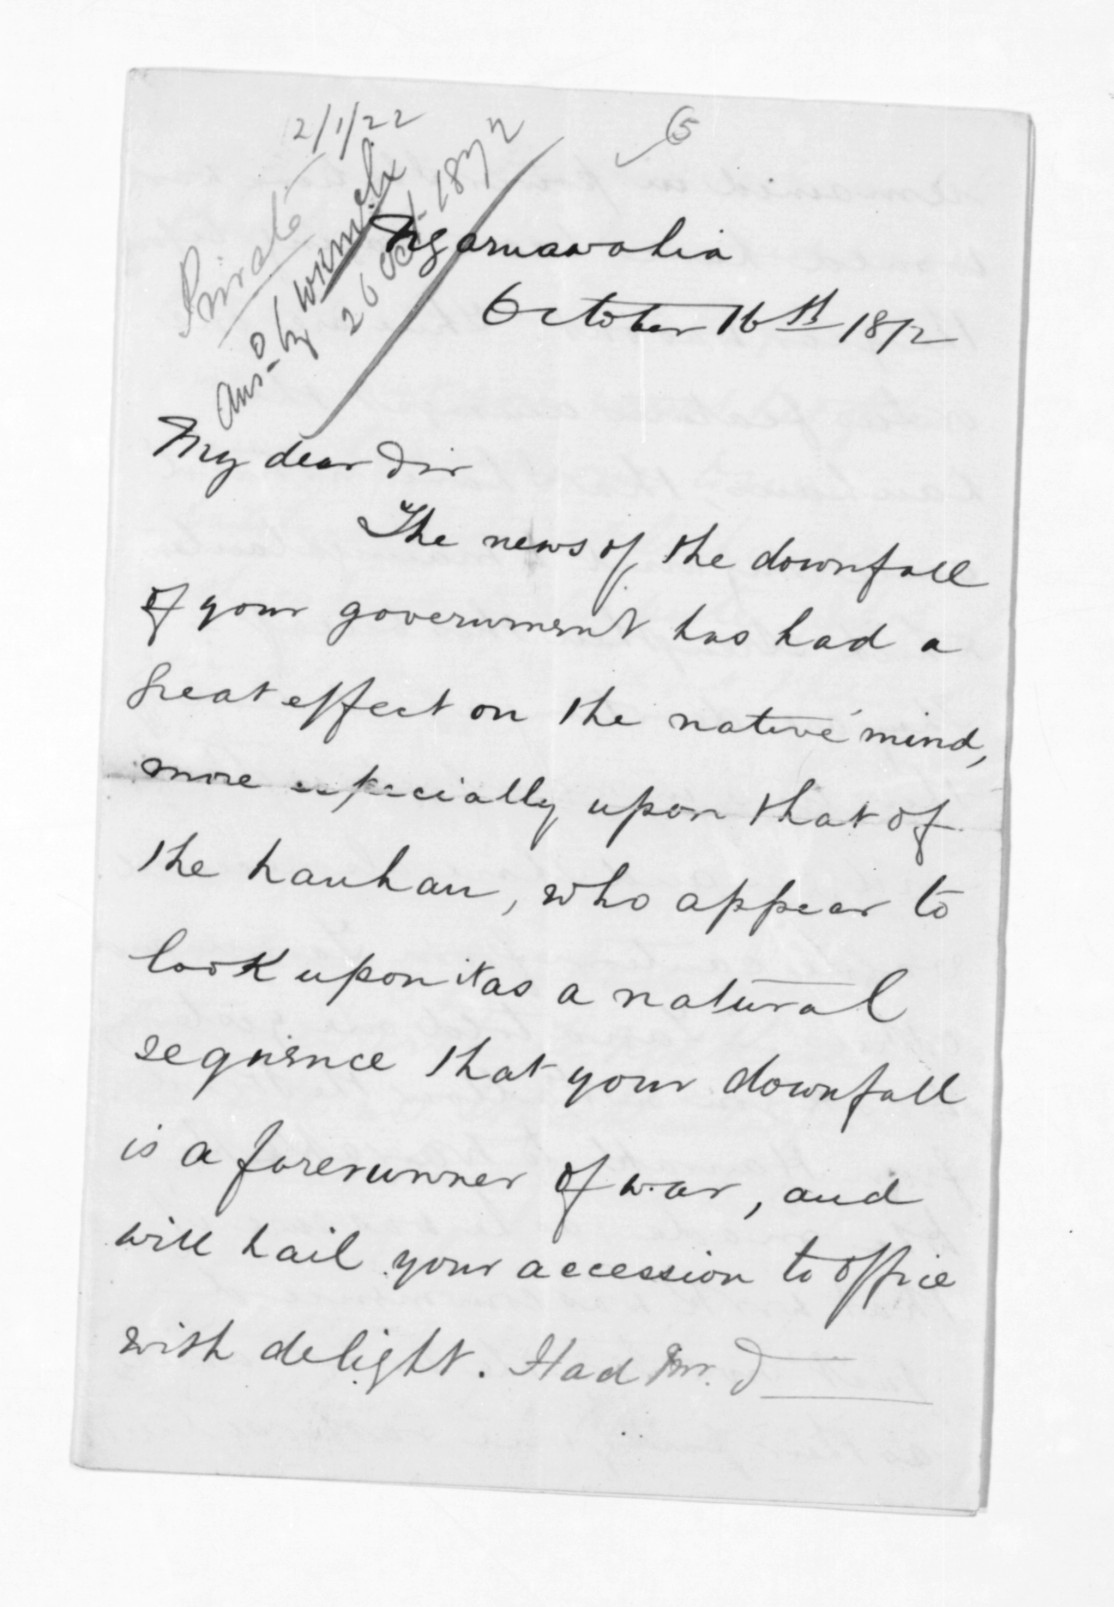 2/1/22
5
Private
Ansd by
26 Oct 1872
Ngaruawahia
October 16th 1872
My dear Sir
The news of the downfall
of your government has had a
great effect on the native mind,
more especially upon that of
the hauhau, who appear to
look upon it as a natural
sequence that your downfall
is a forerunner of war, and
will hail your accession to office
with delight. Had Mr. S